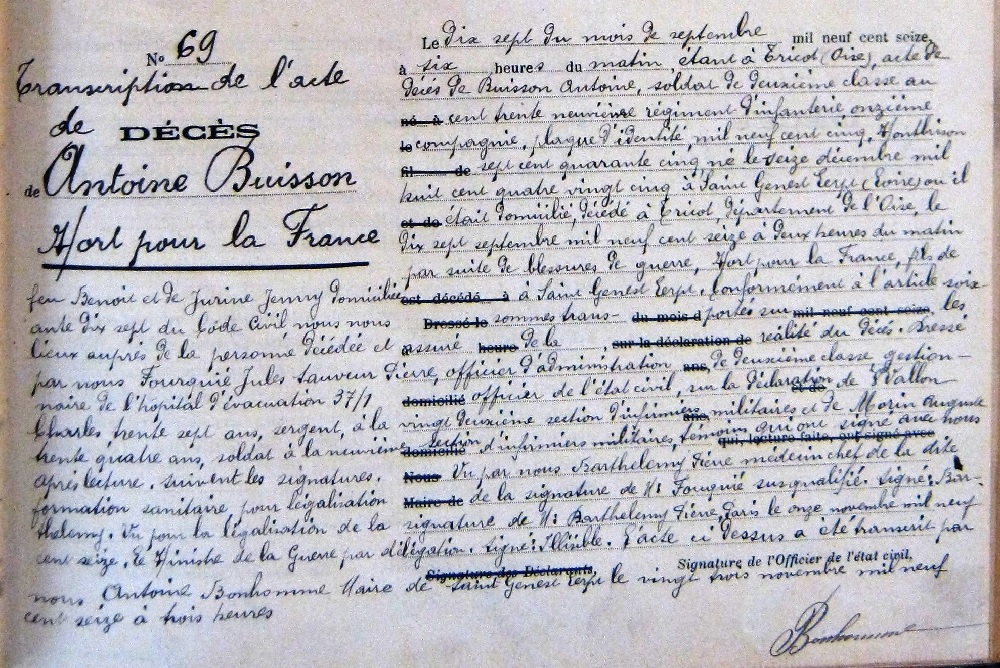 N° 69
Transcription de l'acte
de DÉCÈS
de Antoine Buisson
Mort pour la France
Le dix sept du mois de septembre mil neuf cent seize,
à six heures du matin étant à Tricot (Oise), acte de
décès de Buisson Antoine, soldat de deuxième classe au
né à cent trente neuvième régiment d'infanterie onzième
le compagnie, plaque d'identité, mil neuf cent cinq, Montbrison
fil de sept cent quarante cinq né le seize décembre mil
huit cent quatre vingt cinq à Saint Genest Lerpt (Loire) ou il
et de était domicilié, décédé à Tricot, département de l'Oise, le
dix sept septembre mil neuf cent seize à deux heures du matin
par suite de blessures de guerre, Mort pour la France, fils de
feu Benoit et de Jurine Jenny domiciliée est décédé à à Saint Genest Lerpt. Conformément à l'article soix-
ante dix sept du Code Civil nous nous Dressé le sommes trans- du mois d portés sur mil neuf cent seize, les
lieux auprès de la personne décédée et à assuré heure de la , sur la déclaration de réalité du décès. Dressé
par nous Fourquié Jules Sauveur Pierre, officier d'administration ans, de deuxième classe, gestion-
naire de l'hôpital d'évacuation 37/1 domicilié officier de l'état civil, sur la déclaration de Wallon
Charles, trente sept ans, sergent, à la vingt deuxième section d'infirmiers ans, militaires et de Morin Auguste
trente quatre ans, soldat à la neuvième domicilié section d'infirmiers militaires, témoins qui ont signé avec nous
après lecture. suivent les signatures. qui, lecture faite, ont signé avec
Nous Vu par nous Barthelemy Pierre médecin chef de la dite
formation sanitaire pour légalisation Maire de de la signature de Mr Fouquié susqualifié. Signé: Bar-
thelemy. Vu pour la légalisation de la signature de Mr Barthelemy Pierre, Paris le onze novembre mil neuf
cent seize. Le Ministre de la Guerre par délégation. Signé: Illisible. L'acte ci dessus a été transcrit par
Signature des Déclarants, Signature de l'Officier de l'état civil,
nous Antoine Bonhomme Maire de Saint Genest Lerpt le vingt trois novembre mil neuf
cent seize à trois heures
Bonhomme